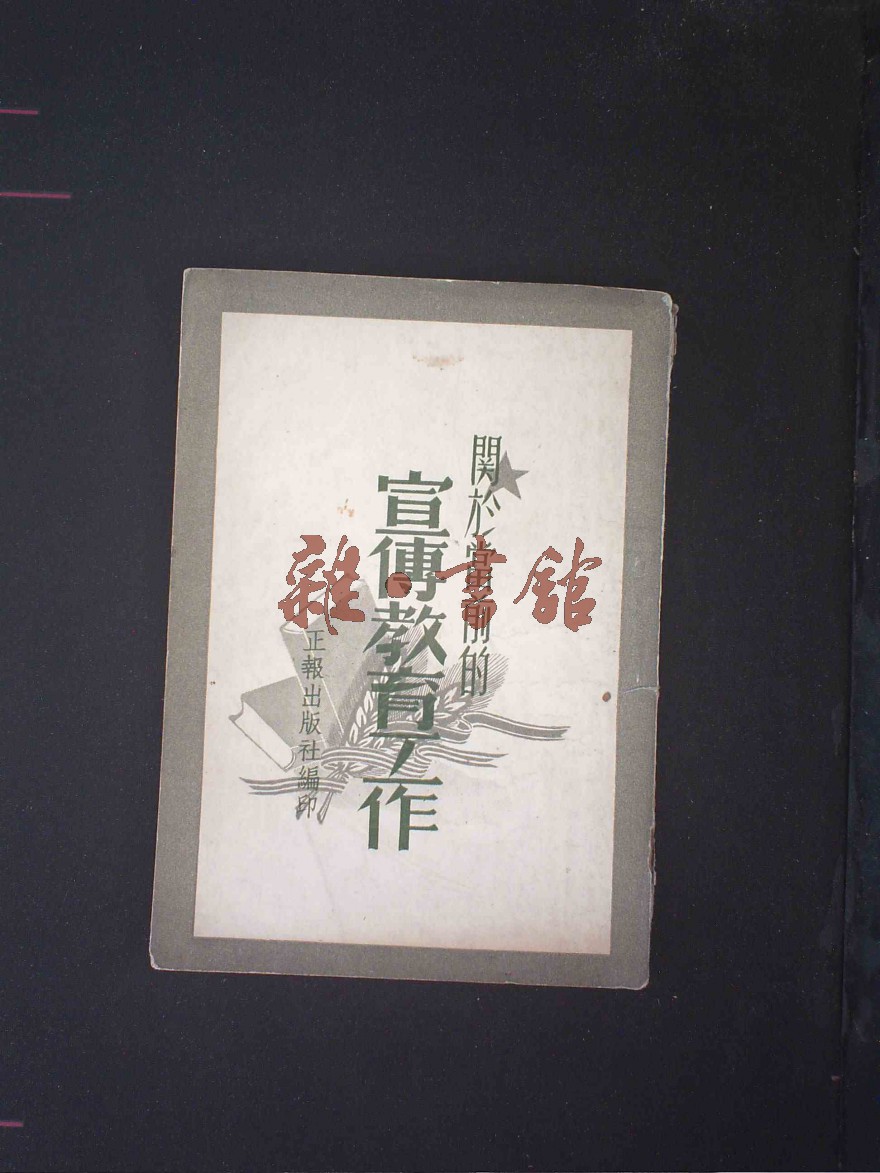 関於當前的
宣傳教育工作
正報出版社編印
雜·書館